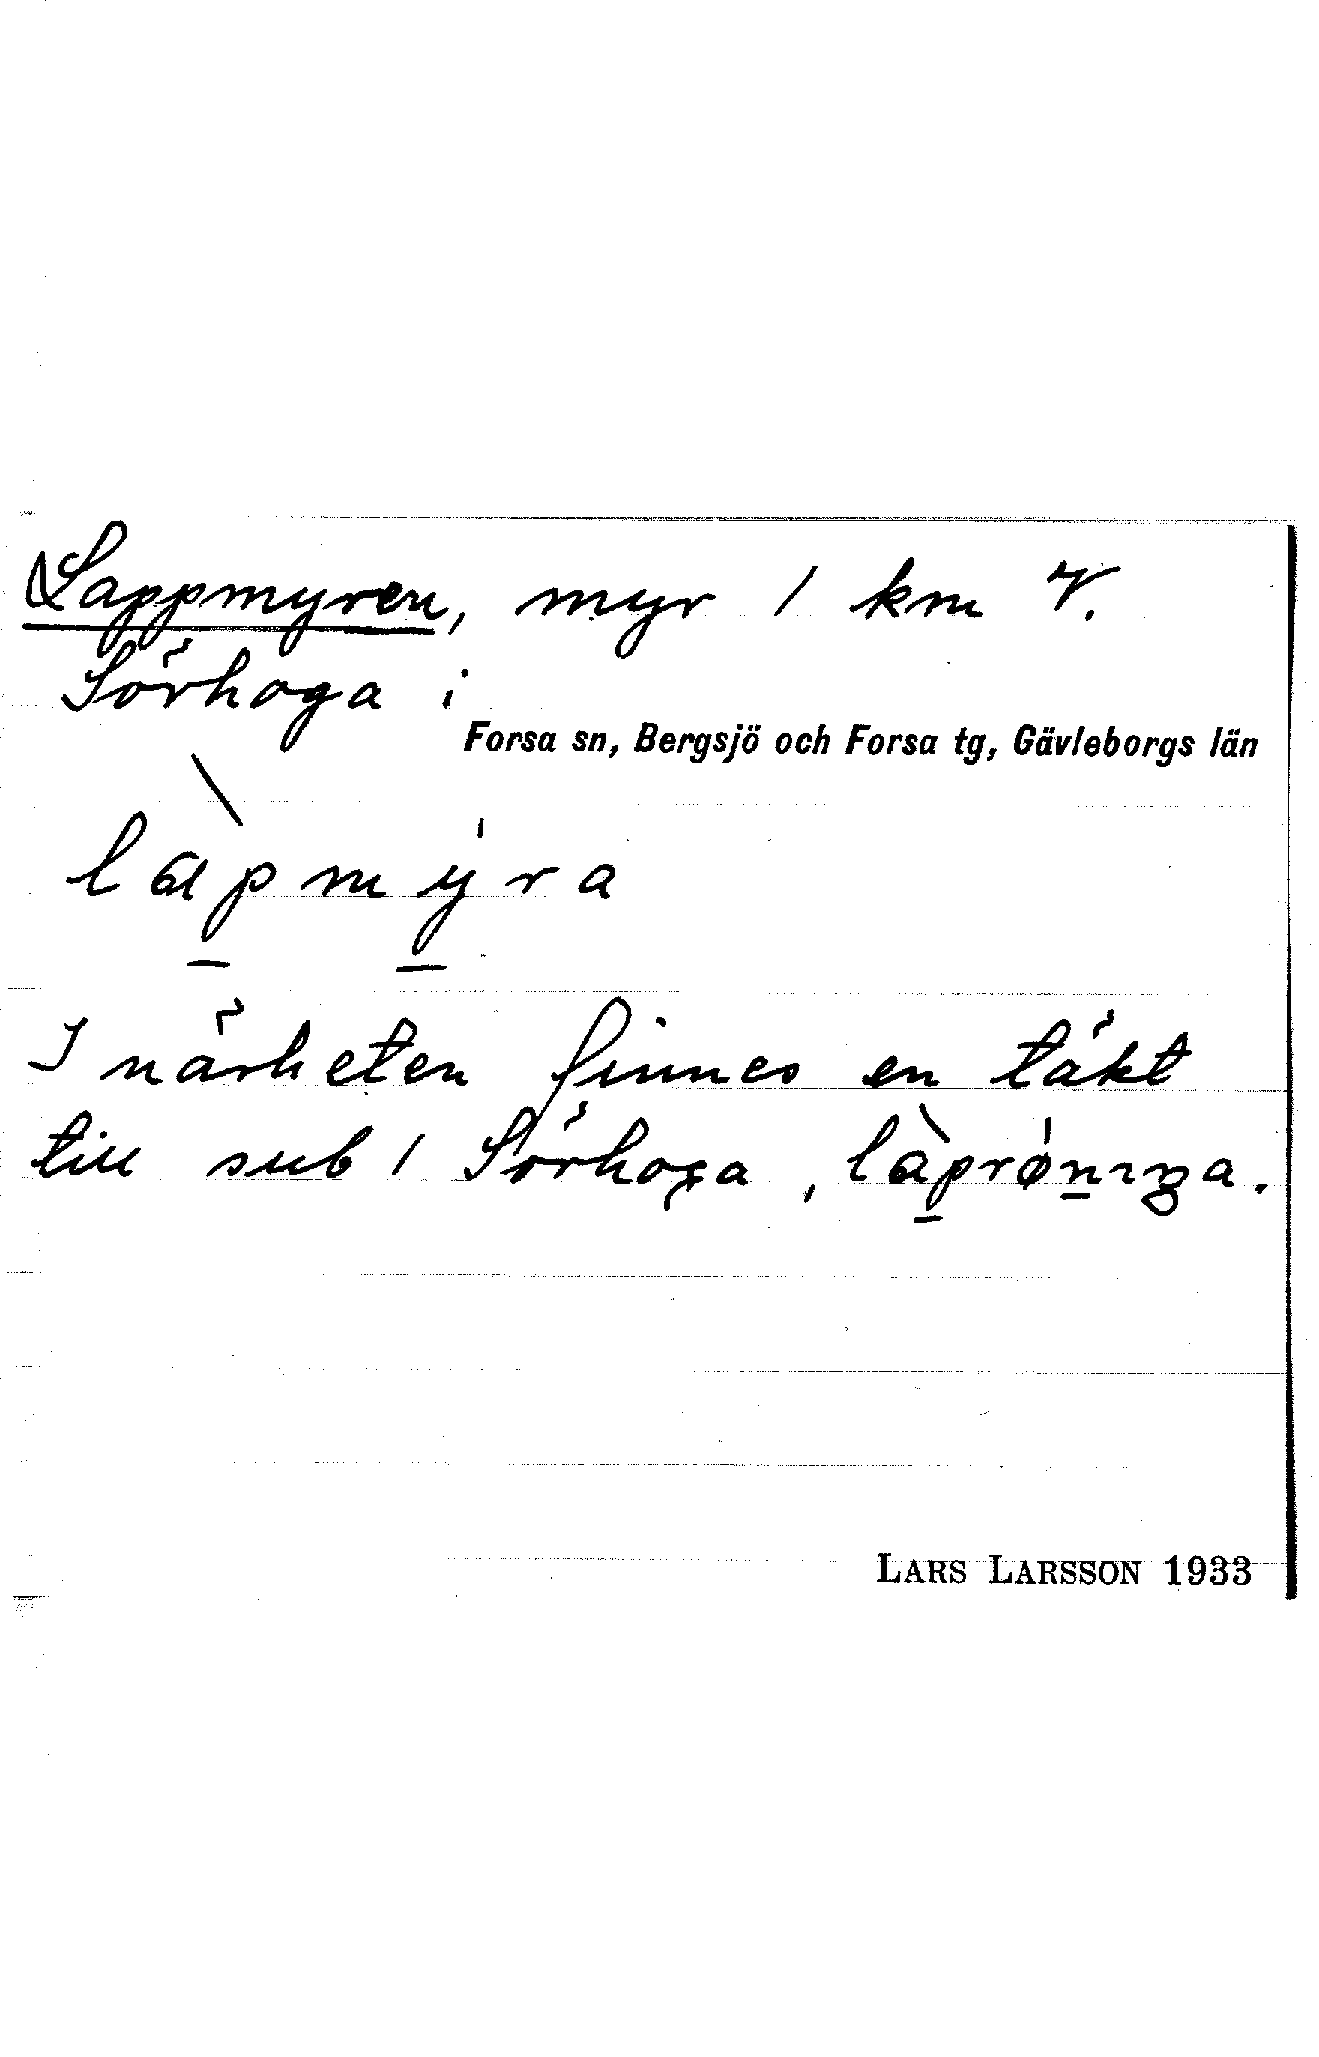 Lappmyren, myr 1 km V.
Sörhoga i
Forsa sn, Bergsjö och Forsa tg, Gävleborgs län
làp̲my̲̍ra
I närheten finnes en täkt
till sub 1 Sörhoga, làp̲rø̍n̲ıŋa.
LARS LARSSON 1933